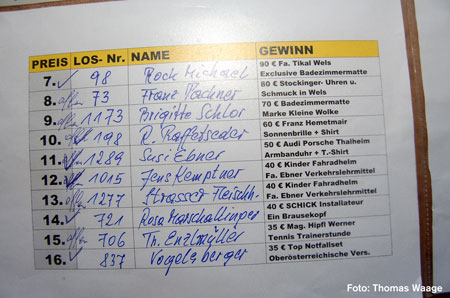 PREIS LOS- Nr. NAME GEWINN
7. 98 Rock Michael 90 € Fa. Tikal Wels
Exclusive Badezimmermatte
8. offen 73 Franz Wachner 80 € Stockinger- Uhren u.
Schmuck in Wels
9. offen 1173 Brigitte Schlor 70 € Badezimmermatte
Marke Kleine Wolke
10. offen 198 R. Rafferseder 60 € Franz Hemetmair
Sonnenbrille + Shirt
11. offen 1289 Susi Ebner 50 € Audi Porsche Thalheim
Armbanduhr + T.-Shirt
12. 1015 Jens Kemptner 40 € Kinder Fahradhelm
Fa. Ebner Verkehrslehrmittel
13. offen 1277 Strasser Fleischh. 40 € Kinder Fahradhelm
Fa. Ebner Verkehrslehrmittel
14. 721 Rosa Marschallinger 40 € SCHICK Installateur
Ein Brausekopf
15. offen 706 Th. Enzlmüller 35 € Mag. Hipfl Werner
Tennis Trainerstunde
16. 837 Vogelsberger 35 € Top Notfallset
Oberösterreichische Vers.
Foto: Thomas Waage